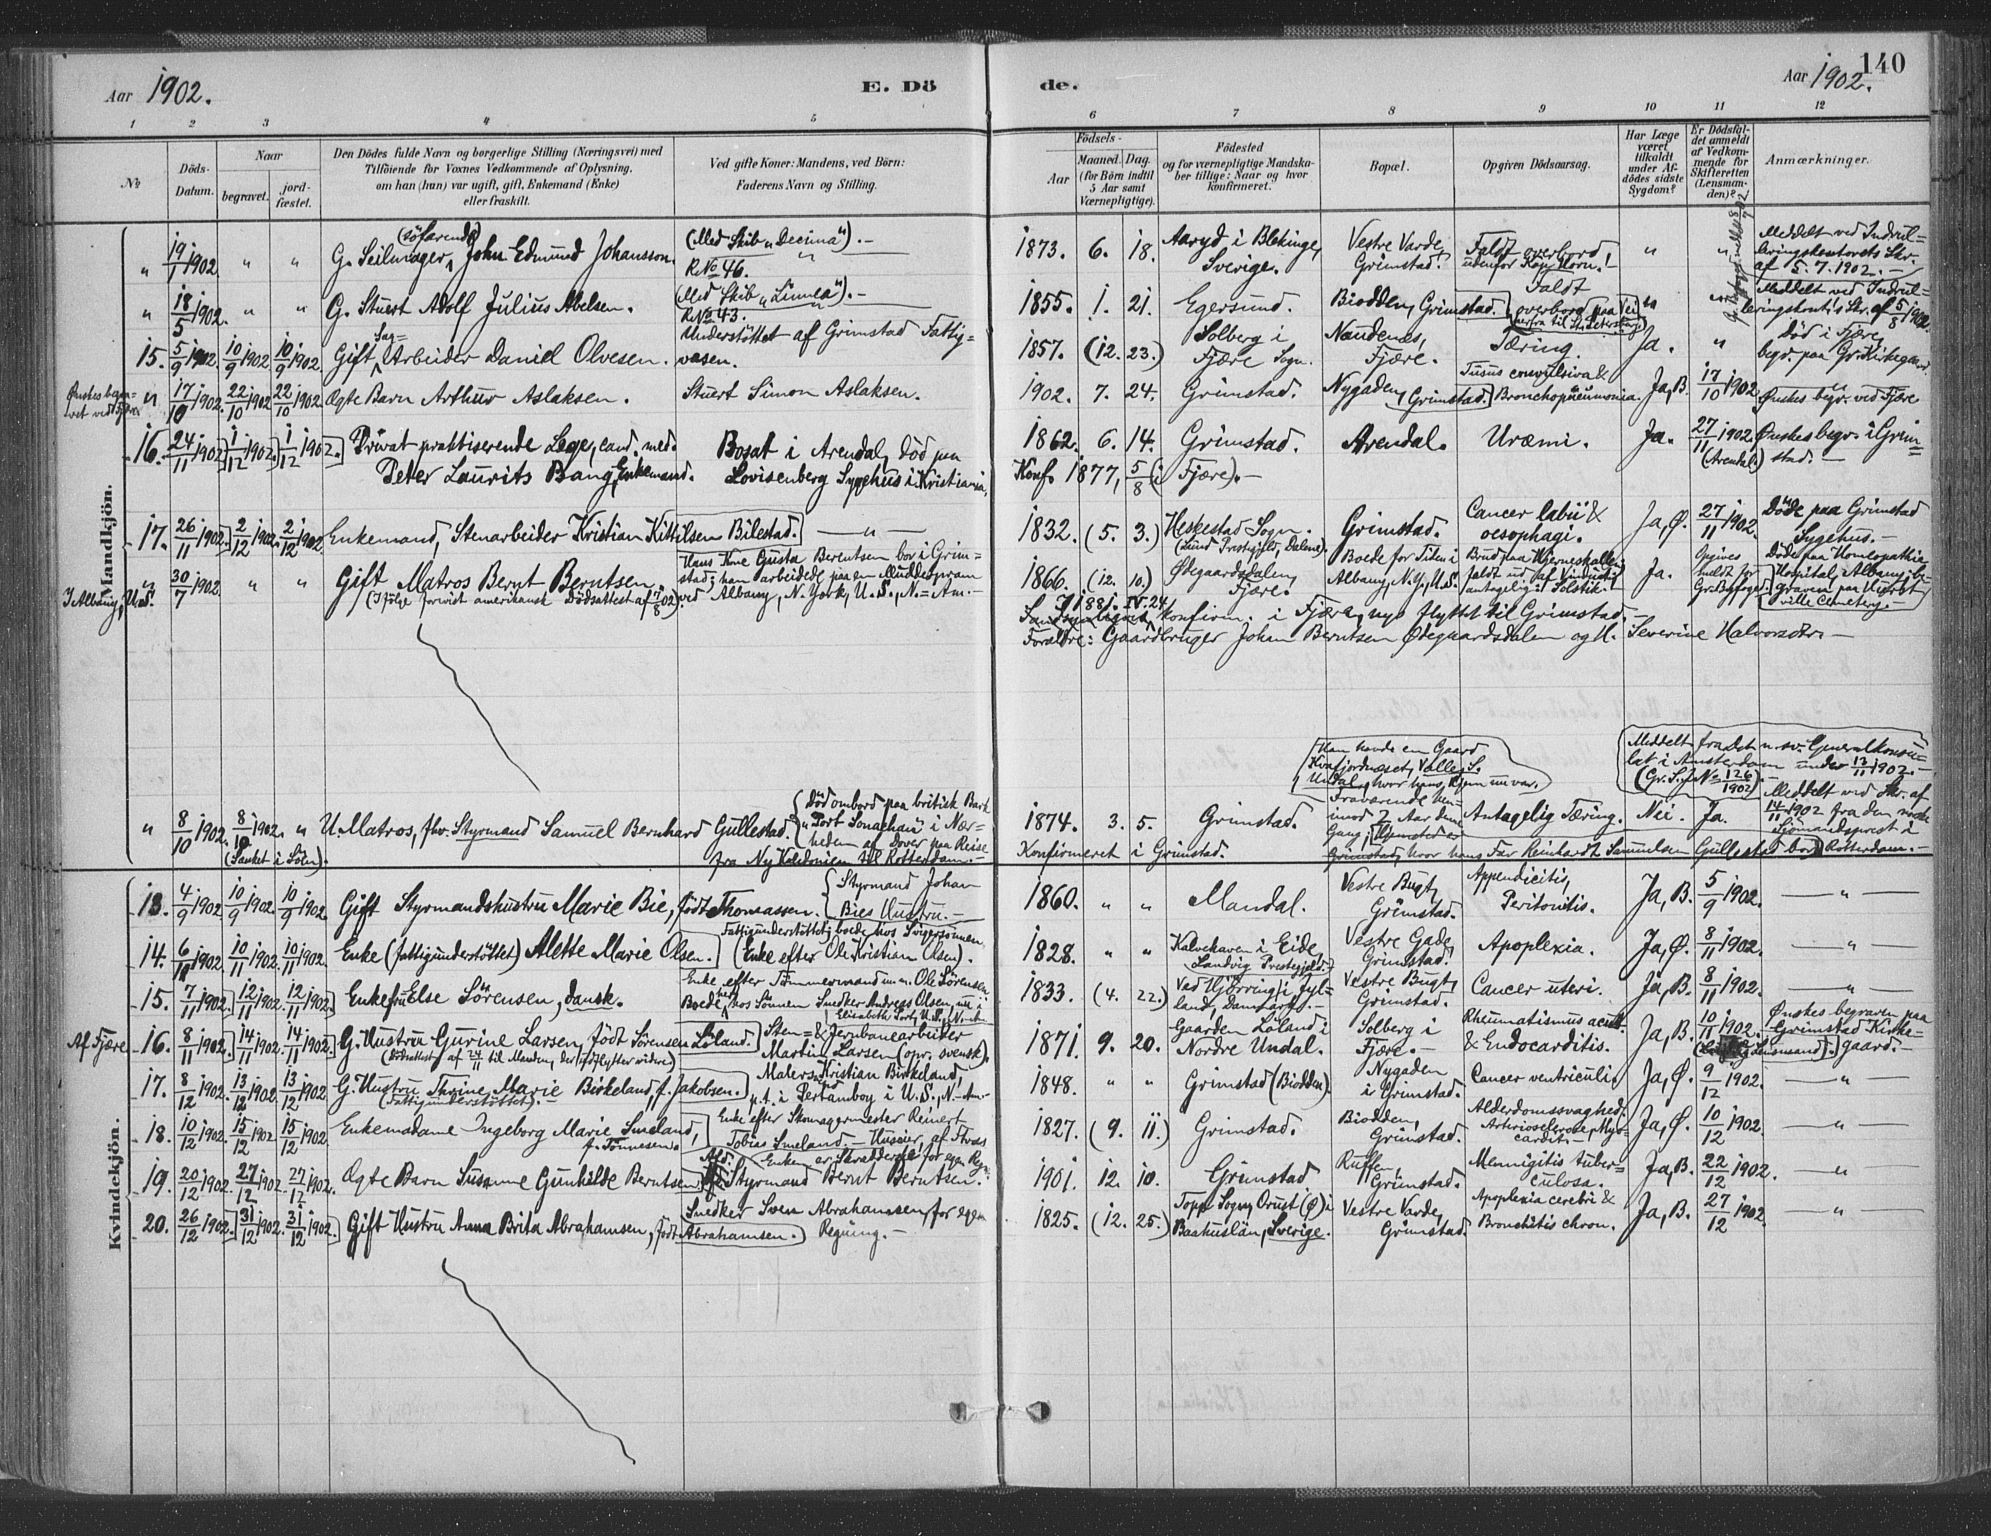 Aar 1902.
E. Dö
de.
Aar 1902.
140
1 2 3 4 5 6 7 8 9 10 11 12
№
Döds-Datum.
Naar
begravet.
jordfæstet.
Den Dödes fulde Navn og borgerlige Stilling (Næringsvei) med
Tilföiende for Voxnes Vedkommende af Oplysning,
om han (hun) var ugift, gift, Enkemand (Enke)
eller fraskilt.
Ved gifte Koner: Mandens, ved Börn:
Faderens Navn og Stilling.
Födsels-
Aar
Maaned. Dag.
(for Börn indtil
5 Aar samt
Værnepligtige).
Födested
og for værnepligtige Mandskaber tillige: Naar og hvor
konfirmeret.
Bopæl.
Opgiven Dödsaarsag.
Har Læge
været
tilkaldt
under Afdödes sidste
Sygdom?
Er Dödsfaldet anmeldt
af Vedkommende for
Skifteretten
(Lensmanden)?
Anmærkninger.
Mandkjön.
" 19/1 1902. " " G. Seilmager (söfarende) John Edmund Johansson. (Med Skib "Decima"). - R. № 46. " 1873. 6. 18. Aaryd i Blekinge, Sverige. Vestre Varde, Grimstad. Faldt overbord udenfor Kap Horn. " " Meddelt ved Indrulleringskontorets Skr. af 5. 7. 1902. -
" 18/5 1902. " " G. Stuert Adolf Julius Abelsen. (Med Skib "Linnea"). - R. № 43. 1855. 1. 21. Egersund. Biodden, Grimstad. Faldt overbord paa Vei herfra til St. Petersburg. " " Meddelt ved Indrulleringskont's Skr. af 5/8 1902.
15. 5/9 1902. 10/9 1902. 10/9 1902. Gift Arbeider Daniel Olvesen. Understöttet af Grimstad Fattigvæsen. 1857. (12. 23.) Solberg i Fjære Sogn. Naudenes, Fjære. Tæring. Ja. " Död i Fjære, begr. paa Gr. Kirkegaard
" 17/10 1902. 22/10 1902. 22/10 1902. Ægte Barn Arthur Aslaksen. Stuert Simon Aslaksen. 1902. 7. 24. Grimstad. Nygaden, Grimstad. Tussis convulsiva & Bronchopneumonia. Ja, B. 17/10 1902. Ønskes begr. ved Fjære
16. 24/11 1902. 1/12 1902. 1/12 1902. Privat praktiserende Læge, cand. med. Peter Laurits Bang, Enkemand. Bosat i Arendal, död paa Lovisenberg Sygehus i Kristiania. 1862. 6. 14. Grimstad. Arendal. Uræmi. Ja. 27/11 1902. (Arendal) Ønskes begr. i Grimstad. -
Konf. 1877, 5/8 (i Fjære). -
17. 26/11 1902. 2/12 1902. 2/12 1902. Enkemand, Stenarbeider Kristian Kittilsen Bilestad. - " - 1832. (5. 3.) Heskestad Sogn. (Lund Prestegjeld, Dalene) Grimstad. Cancer labii & oesophagi. Ja, Ø. 27/11 1902. Döde paa Grimstad Sygehus. -
I Albany, U.S. " 30/7 1902. " " Gift Matros Bernt Berntsen. (Ifölge forvist amerikansk Dödsattest af 7/8 02). Hans Kone Gusta Berentsen bor i Grimstad; han arbeidede paa en Mudderpram ved Albany, N. York, U. S., N.-Am. - 1866. (12. 10.) Ødegaardsdalen, Fjære. Boede for Tiden i Albany, N.Y., U.S. Brud paa Hjerneskallen, faldt ud af Vinduet, antagelig i Solstik. Ja. Döde paa Homeopathic Hospital, Albany, begraven paa Cemetery. -
1881. IV. 24 konfirm. i Fjære, nys flyttet til Grimstad. -
Forældre: Gaardbruger Johan Berntsen Ødegaardsdalen og H. Severine Halvorsdtr. -
Han havde en Gaard Kvafjordnæset, Valle S. Undal, hvor hans Hjem nu var.
Meddelt fra det n. sv. Generalkonsulat i Amsterdam under 13/11 1902. - (Gr. S. J. № 126/1902). -
" 8/10 1902. 8/10 1902. (Sænket i Söen). " U. Matros, fhv. Styrmand Samuel Bernhard Gullestad. Död ombord paa britisk Bark "Port Sonachan" i Nærheden af Dover paa Reise fra Ny Kaledonien til Rotterdam. - 1874. 3. 5. Grimstad. Fraværende henimod 2 Aar denne Gang; Hjemsted er Antagelig Tæring. Nei. Ja. Meddelt ved Skr. af 14/11 1902 fra den norske Sjömandsprest i Rotterdam. -
Konfirmeret i Grimstad. Grimstad, hvor hans Far Reinhardt Samuelsen Gullestad bor
Kvindekjön.
13. 4/9 1902. 10/9 1902. 10/9 1902. Gift Styrmandshustru Marie Bie, födt Thomassen. Styrmand Johan Bies Hustru. - 1860. " " Mandal. Vestre Bugt, Grimstad. Appendicitis, Peritonitis. Ja, B. 5/9 1902. - " -
14. 6/11 1902. 10/11 1902. 10/11 1902. Enke (fattigunderstöttet) Alette Marie Olsen. Fattigunderstöttet; boede hos Svigersönnen. (Enke efter Ole Kristian Olsen). 1828. " " Kalvehaven i Eide, Landvig Prestegjeld. Vestre Gade, Grimstad. Apoplexia. Ja, Ø. 8/11 1902. - " -
15. 7/11 1902. 12/11 1902. 12/11 1902. Enkefru Else Sörensen, dansk. Enke efter Tömmermand m.m. Ole Sörensen. Boede her hos Sönnen Snedker Andreas Olsen, nu i Elisabeth Port, U.S., N. 1833. (4. 22.) Ved Hjörring i Jylland, Danmark. - Vestre Bugt, Grimstad. Cancer uteri. Ja, B. 8/11 1902. - " -
Af Fjære 16. 8/11 1902. 14/11 1902. 14/11 1902. G. Hustru Gurine Larsen, födt Sörensen Löland. (Dödsattest af 24/11 til Manden, der flytter videre) Sten- & Jernbanearbeider Martin Larsen (opr. svensk). 1871. 9. 20. Gaarden Löland i Nordre Undal. Solberg i Fjære. - Rheumatismus acut. & Endocarditis. Ja, B. 10/11 1902. Ønskes begraven paa Grimstad Kirkegaard. -
17. 8/12 1902. 13/12 1902. 13/12 1902. G. Hustru Thrine Marie Birkeland, f. Jakobsen. (Fattigunderstöttet). - Malersv. Kristian Birkeland, p.t. i Pertamboy i U. S., N.-Am. 1848. " " Grimstad (Biodden). Nygaden i Grimstad. Cancer ventriculi. Ja, Ø. 9/12 1902. - " -
18. 10/12 1902. 15/12 1902. 15/12 1902. Enkemadame Ingeborg Marie Smeland, f. Tönnesen. Enke efter Skomagermester Reinert Tobias Smeland. - 1827. (9. 11.) Grimstad. Biodden, Grimstad. Alderdomssvaghed. Arteriosclerose, Myocarditis. - Ja, Ø. 10/12 1902. - " -
19. 20/12 1902. 27/12 1902. 27/12 1902. Ægte Barn Susanne Gunhilde Berntsen. Styrmand Bernt Berntsen. 1901. 12. 10. Grimstad. Ruffen, Grimstad. Menigitis tuberculosa. Ja, B. 22/12 1902. - " -
20. 26/12 1902. 31/12 1902. 31/12 1902. Gift Hustru Anna Brita Abrahamsen, födt Abrahamsen. Snedker Sven Abrahamsen, for egen Regning. - 1825. (12. 25.) Topp Sogn, Orust (Ø) i Baahuslän, Sverige. Vestre Varde, Grimstad. Apoplexia cerebri & Bronchitis chron. Ja, B. 27/12 1902. - " -